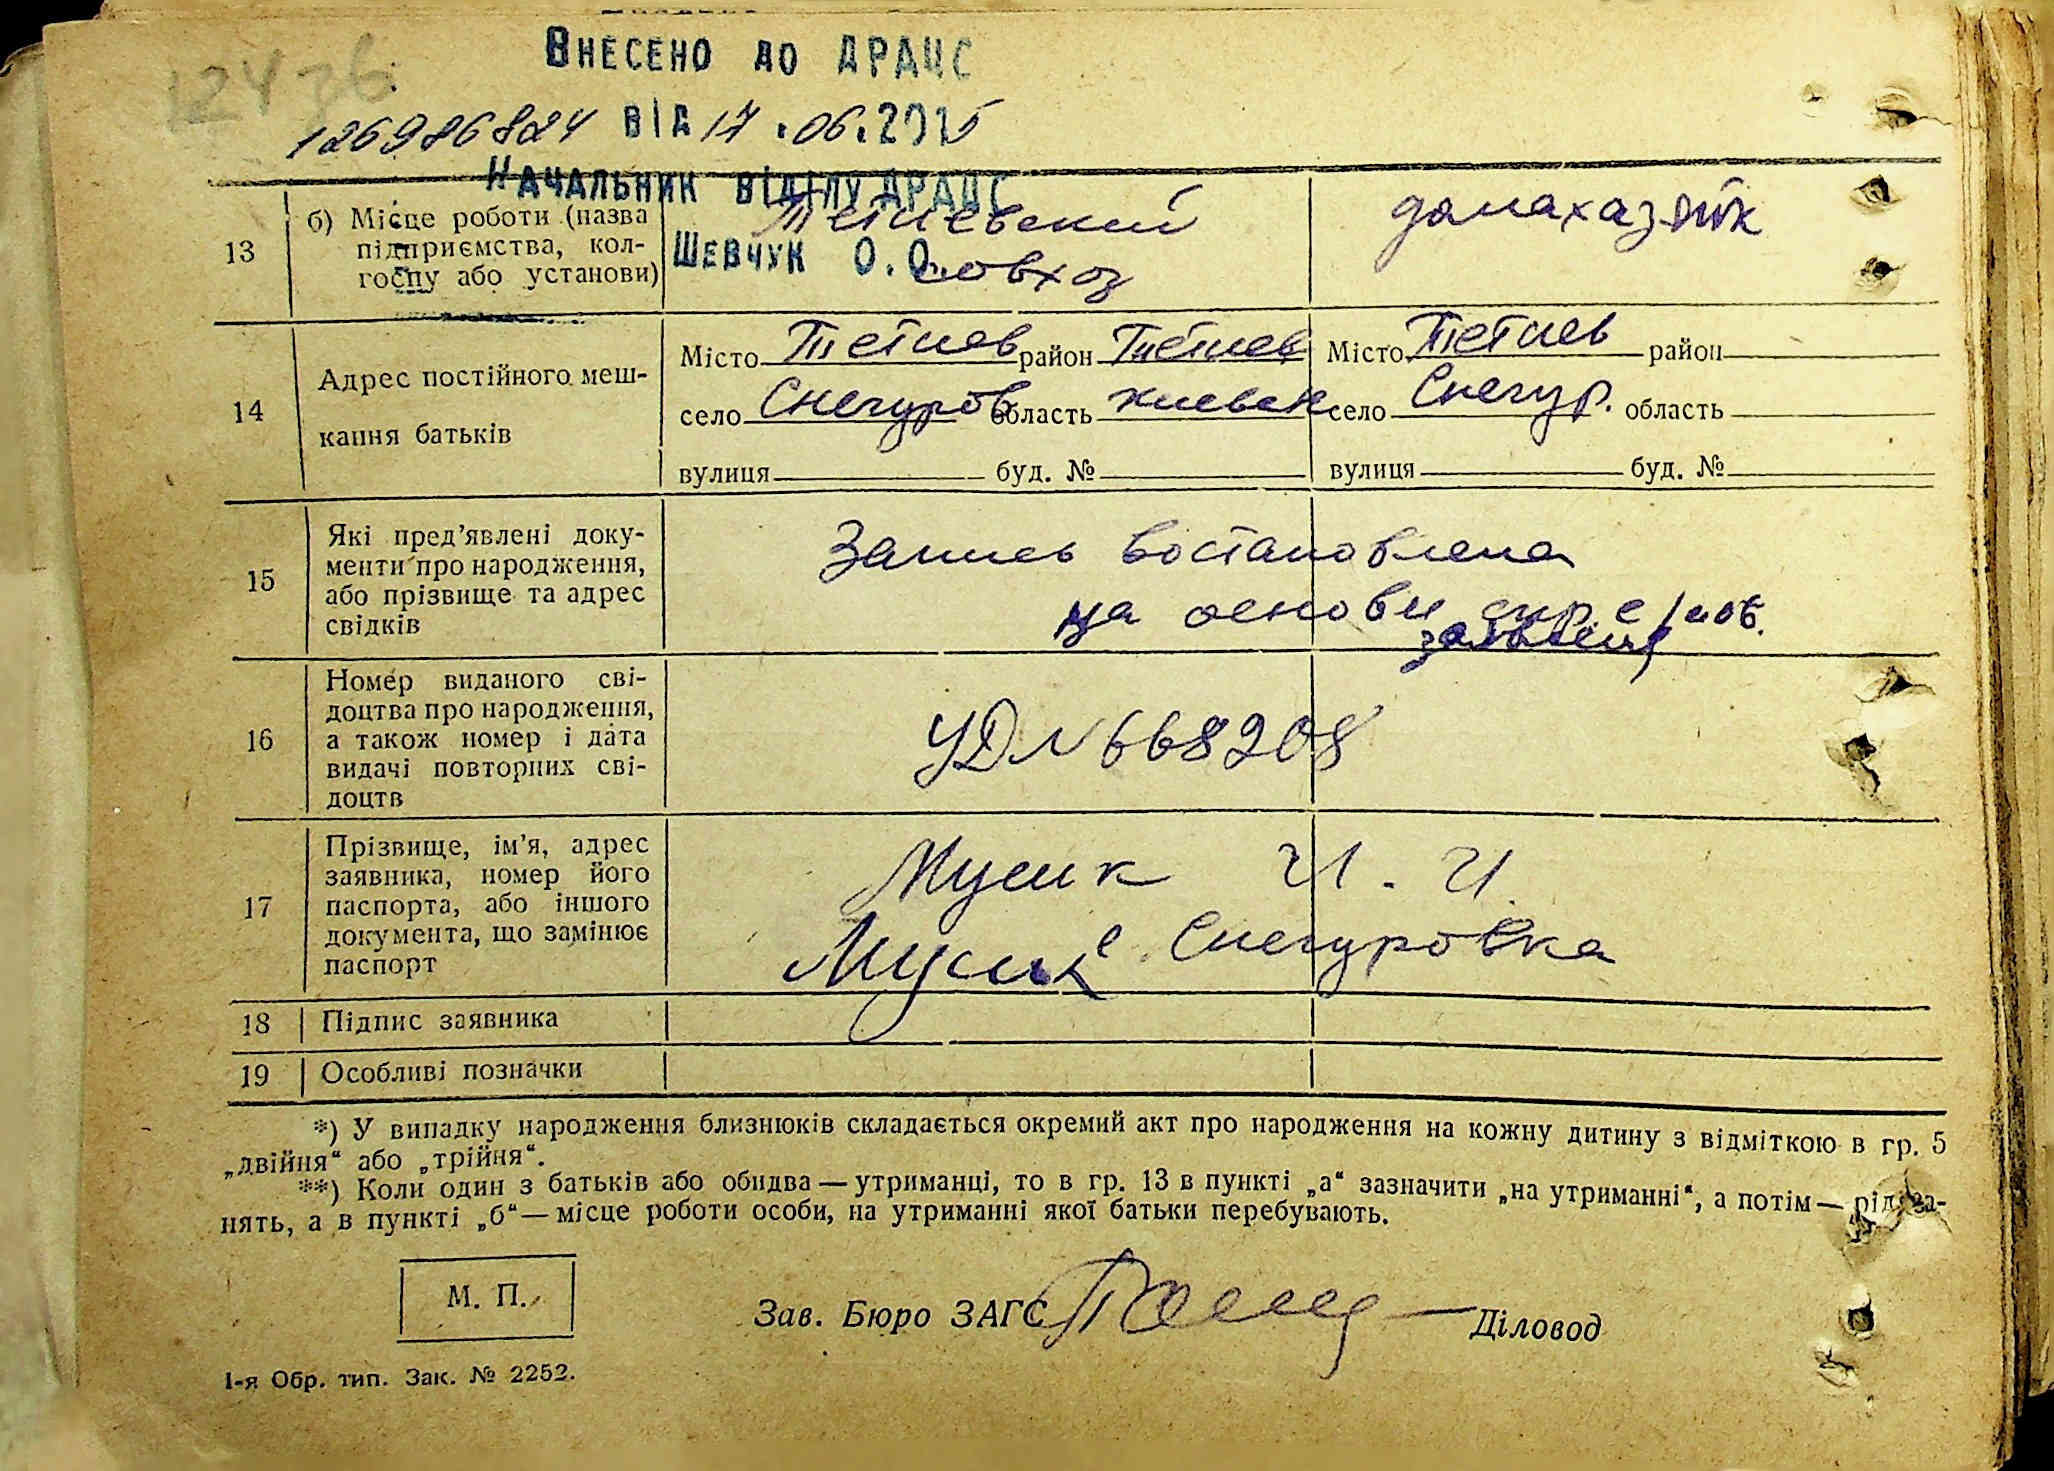 124 зв
Внесено до ДРАЦС
126986824 від 17.06.2015
Начальник відділу ДРАЦС
Шевчук О. О.
13 б) Місце роботи (назва підприємства, колгоспу або установи) Тетиевский совхоз домахазяйк
14 Адрес постійного меш-
кання батьків
Місто Тетиев район Тетиев Місто Тетиев район
село Снегуров область Киевск село Снегур. область
вулиця буд. № вулиця буд. №
15 Які пред’явлені доку-
менти про народження,
або прізвище та адрес
свідків
Запись востановлена
на основи
16 Номер виданого сві-
доцтва про народження,
а також номер і дата
видачі повторних сві-
доцтв
УД № 668208
17 Прізвище, ім’я, адрес
заявника, номер його
паспорта, або іншого
документа, що замінює
паспорт
Мусик И. И.
с Снегуровка
18 Підпис заявника Мусик
19 Особливі позначки
*) У випадку народження близнюків складається окремий акт про народження на кожну дитину з відміткою в гр. 5
„двійня“ або „трійня“.
**) Коли один з батьків або обидва — утриманці, то в гр. 13 в пункті „а“ зазначити „на утриманні“, а потім — рід за-
нять, а в пункті „б“ — місце роботи особи, на утриманні якої батьки перебувають.
М. П.
Зав. Бюро ЗАГС Діловод
1-я Обр. тип. Зак. № 2252.